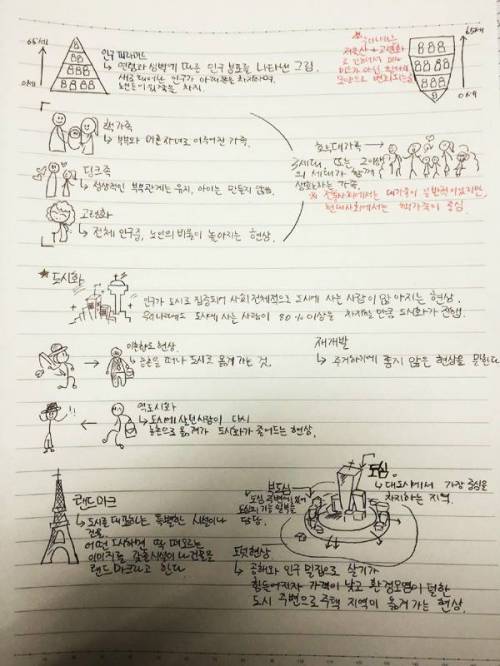 65세
0세
인구 피라미드
↳ 연령과 성별에 따른 인구 분포를 나타낸 그림.
새로 태어난 인구가 아래쪽을 차지하며,
노인들이 위쪽을 차지.
저출산 + 고령화
로 인해서 피라
미드가 아닌
모양으로 변화되는중
65세
0세
핵가족
↳ 부부와 미혼자녀로 이루어진 가족.
딩크족
↳ 정상적인 부부관계는 유지, 아이는 만들지 않음.
고령화
↳ 전체 인구중, 노인의 비율이 높아지는 현상.
확대가족
3세대, 또는 그 이상
의 세대가 함께
생활하는 가족.
※ 전통사회에서는 대가족이 일반적이었지만,
현대사회에서는 핵가족이 중심
★도시화
인구가 도시로 집중되어 사회 전체적으로 도시에 사는 사람이 많아지는 현상.
우리나라에도 도시에 사는 사람이 80%이상을 차지할 만큼 도시화가 진행.
이촌향도현상.
↳ 농촌을 떠나 도시로 옮겨 가는 것.
재개발
↳ 주거하기에 좋지 않은 현상을 말한다
역도시화
↳ 도시에 살던 사람이 다시
농촌으로 옮겨가 도시화가 줄어드는 현상.
랜드마크
↳ 도시를 대표하는 특별한 시설이나
건물.
어떤 도시하면 딱 떠오르는
이미지를 갖춘 시설이나 건물을
랜드마크라고 한다
부도심
↳ 도심 주변에 있어
도심의 기능 일부를
담당.
도심.
↳ 대도시에서 가장 중심을
차지하는 지역.
도넛현상
↳ 공해와 인구 밀집으로 살기가
힘들어지자 가격이 낮고 환경오염이 덜한
도시 주변으로 주택 지역이 옮겨가는 현상.